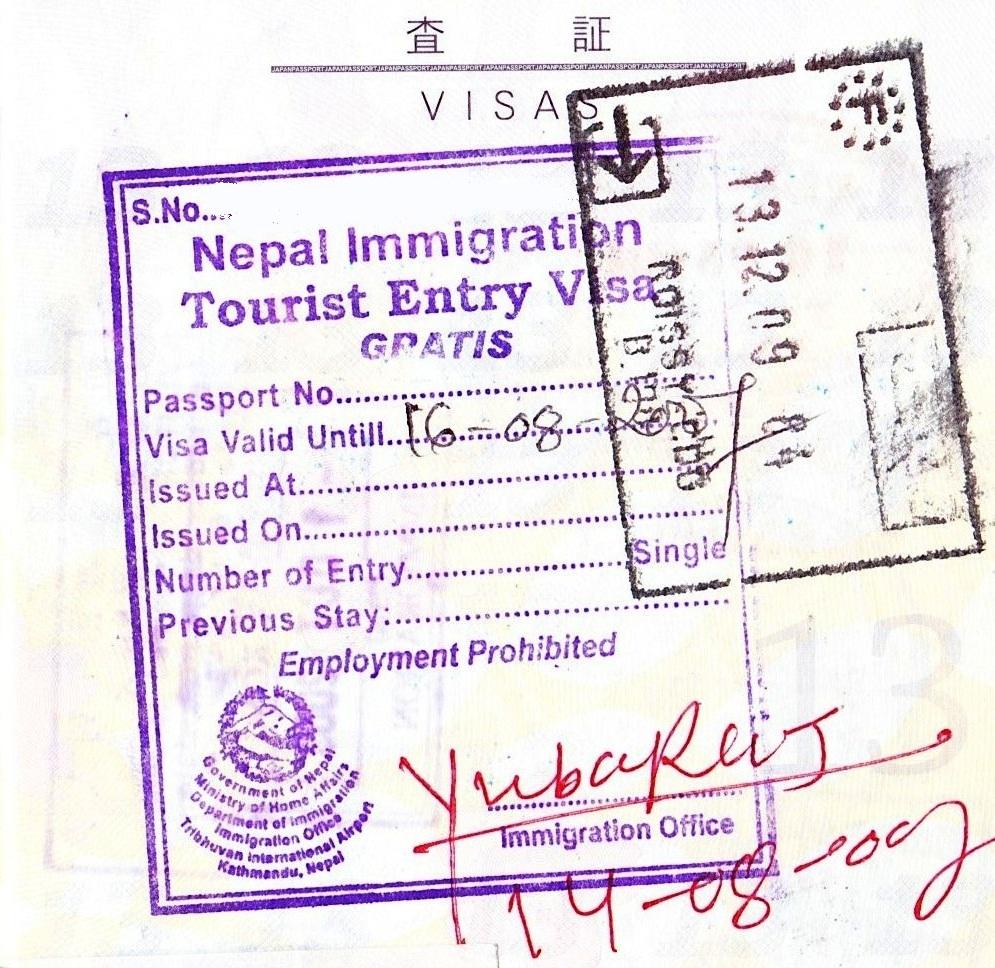 査 証
JAPANPASSPORTJAPANPASSPORTJAPANPASSPORTJAPANPASSPORTJAPANPASSPORTJAPANPASSPORT
VISAS
S.No.....
Nepal Immigration
Tourist Entry Visa
GRATIS
Passport No.....
Visa Valid Untill.....16-08-
Issued At.....
Issued On.....
Number of Entry.....Single
Previous Stay:.....
Employment Prohibited
Government of Nepal
Ministry of Home Affairs
Department of Immigration
Immigration Office
Tribhuvan International Airport
Kathmandu, Nepal
YubaRaj
Immigration Office
14-08-09
13.12.09
13